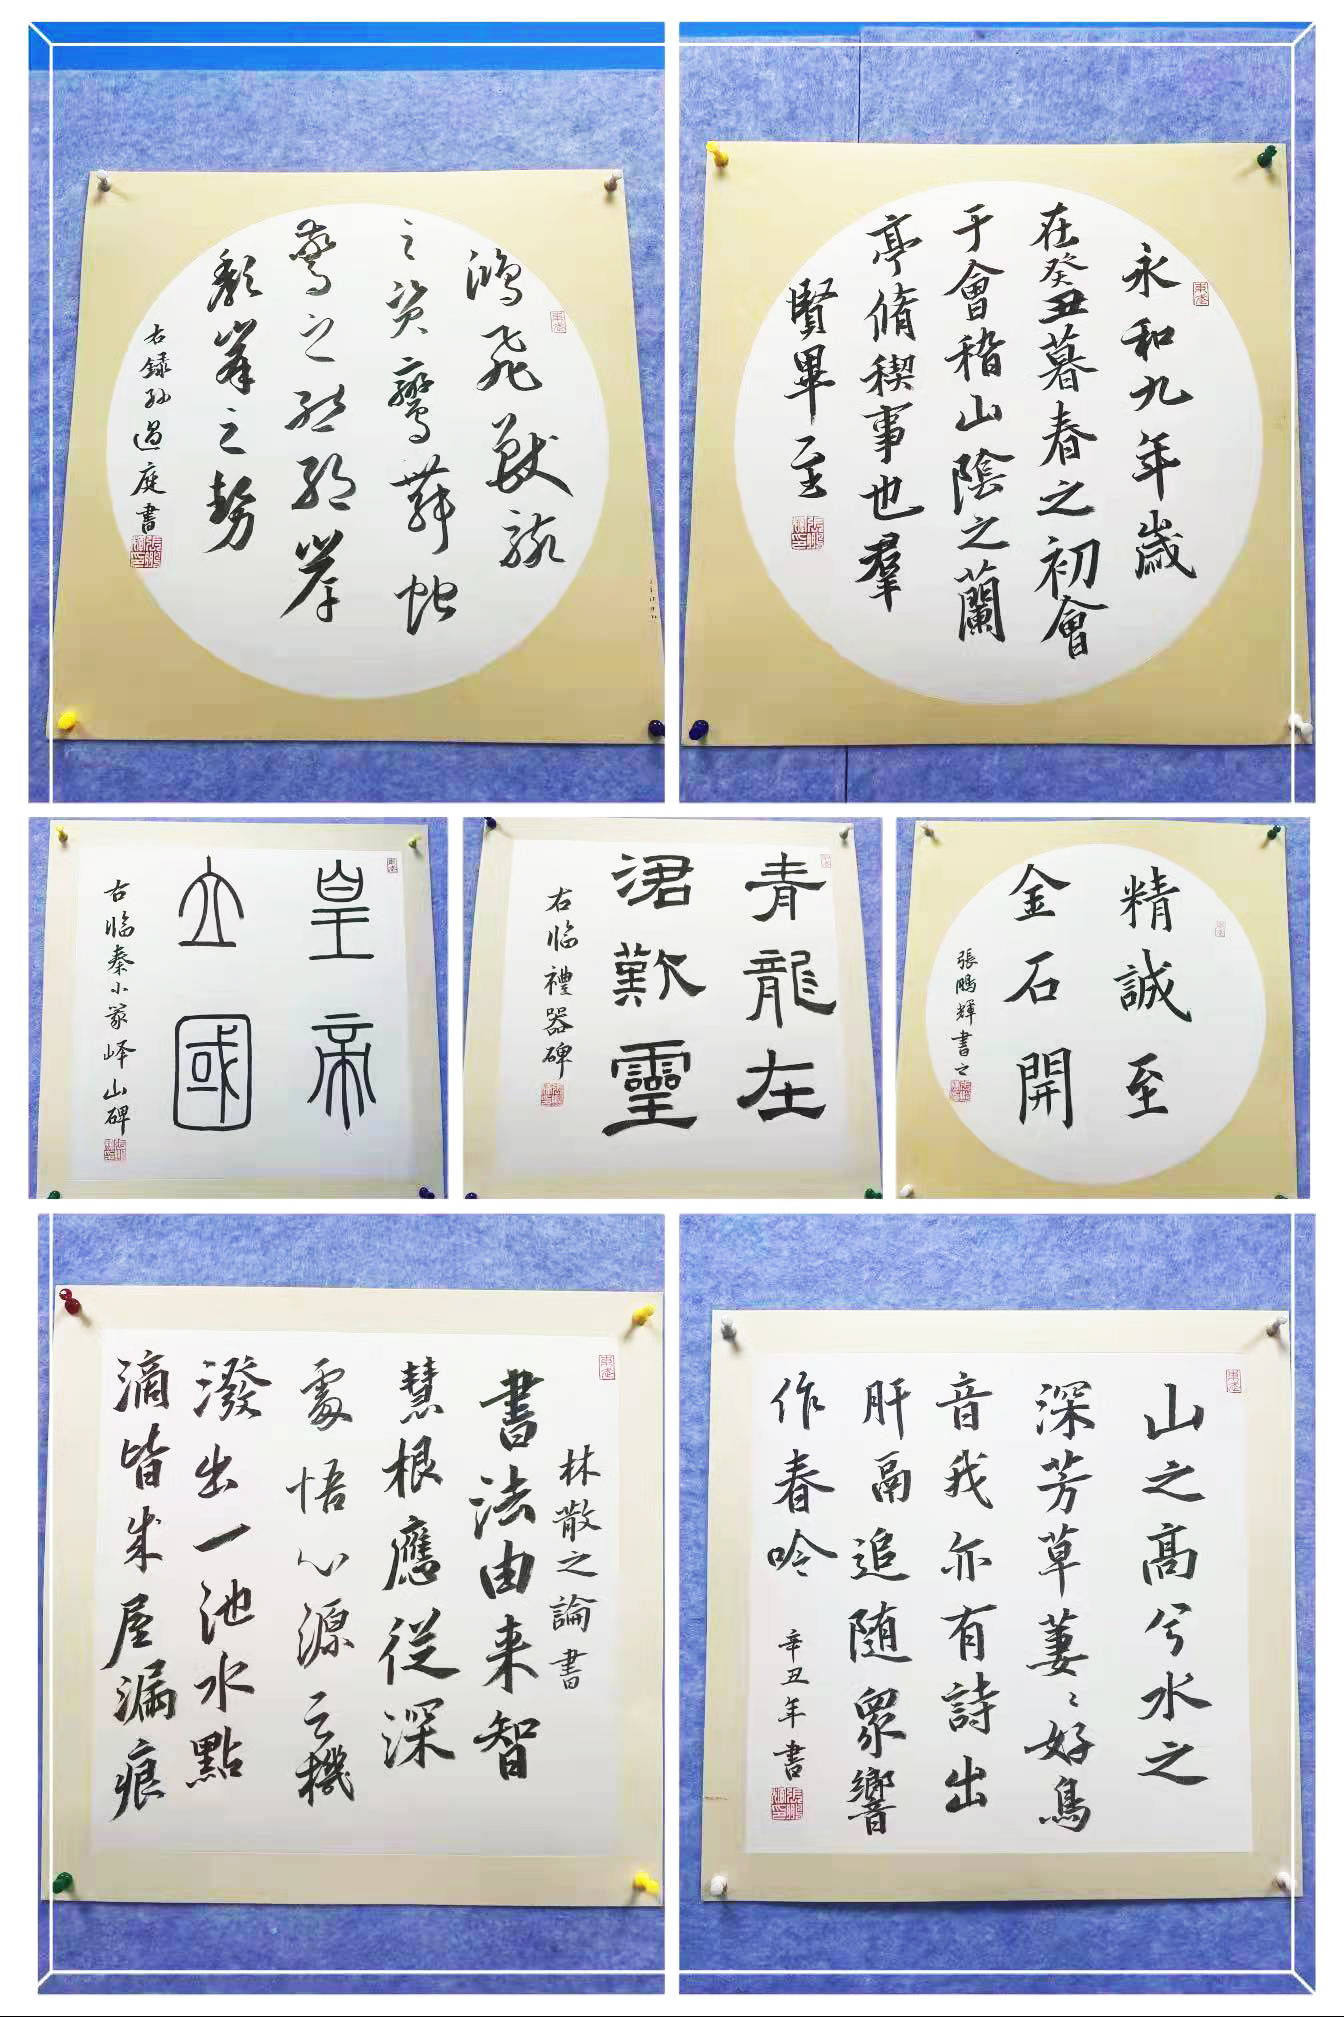 鴻飛獸駭
之資鸞舞蛇
驚之態絕岸
頹峯之勢
右録孫過庭書
永和九年歲
在癸丑暮春之初會
于會稽山陰之蘭
亭脩稧事也羣
賢畢至
皇帝
立國
右臨秦小篆峄山碑
青龍在
涒歎靈
右臨禮器碑
精誠至
金石開
張鵬輝書之
林散之論書
書法由来智
慧根應從深
處悟心源云機
潑出一池水點
滴皆成屋漏痕
山之高兮水之
深芳草萋〻好鳥
音我亦有詩出
肝鬲追随衆響
作春吟
辛丑年書